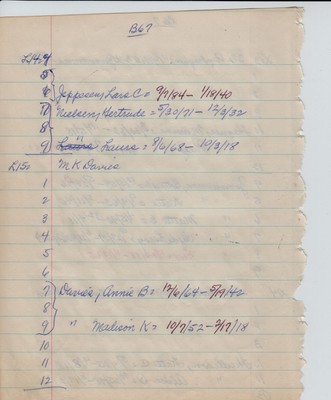 B67
L14: 4
5
6 Jeppesen, Lars C = 9/9/84 — 1/18/40
7 Nielsen, Gertrude = 5/20/71 — 12/3/32
8
9 Laura = 9/6/68 — 10/3/18
L15: M K Davies
1
2
3
4
5
6
7 Davies, Annie B = 12/6/64 — 5/19/42
8
9 " Madison K = 10/7/52 — 2/17/18
10
11
12